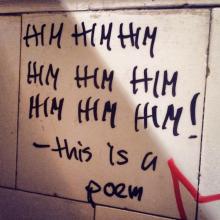 HIM HIM HIM
HIM HIM HIM
HIM HIM HIM!
-this is a
poem